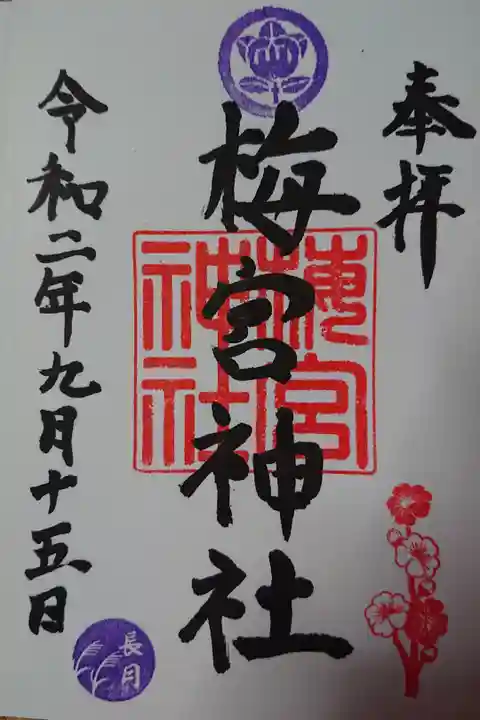 奉拝
梅宮神社
梅宮神社
令和二年九月十五日
長月